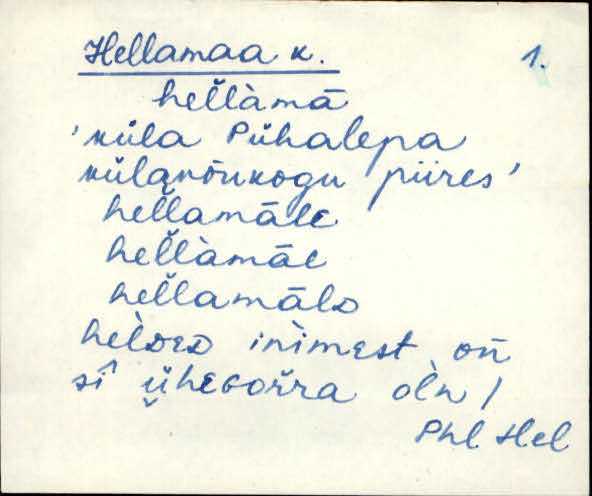 Hellamaa k. 1.
hel̆l̀amā
'küla Pühalepa
külanõukogu piires'
hel̆lamālɛ
hel̆l̀amāɛ
hel̆lamālᴅ
hèlᴅᴇᴅ inimest on̄
sî ühᴇɢořra oln /
Phl Hel